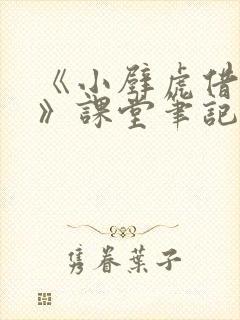 《小壁虎借
》課堂筆記
隽眷葉子